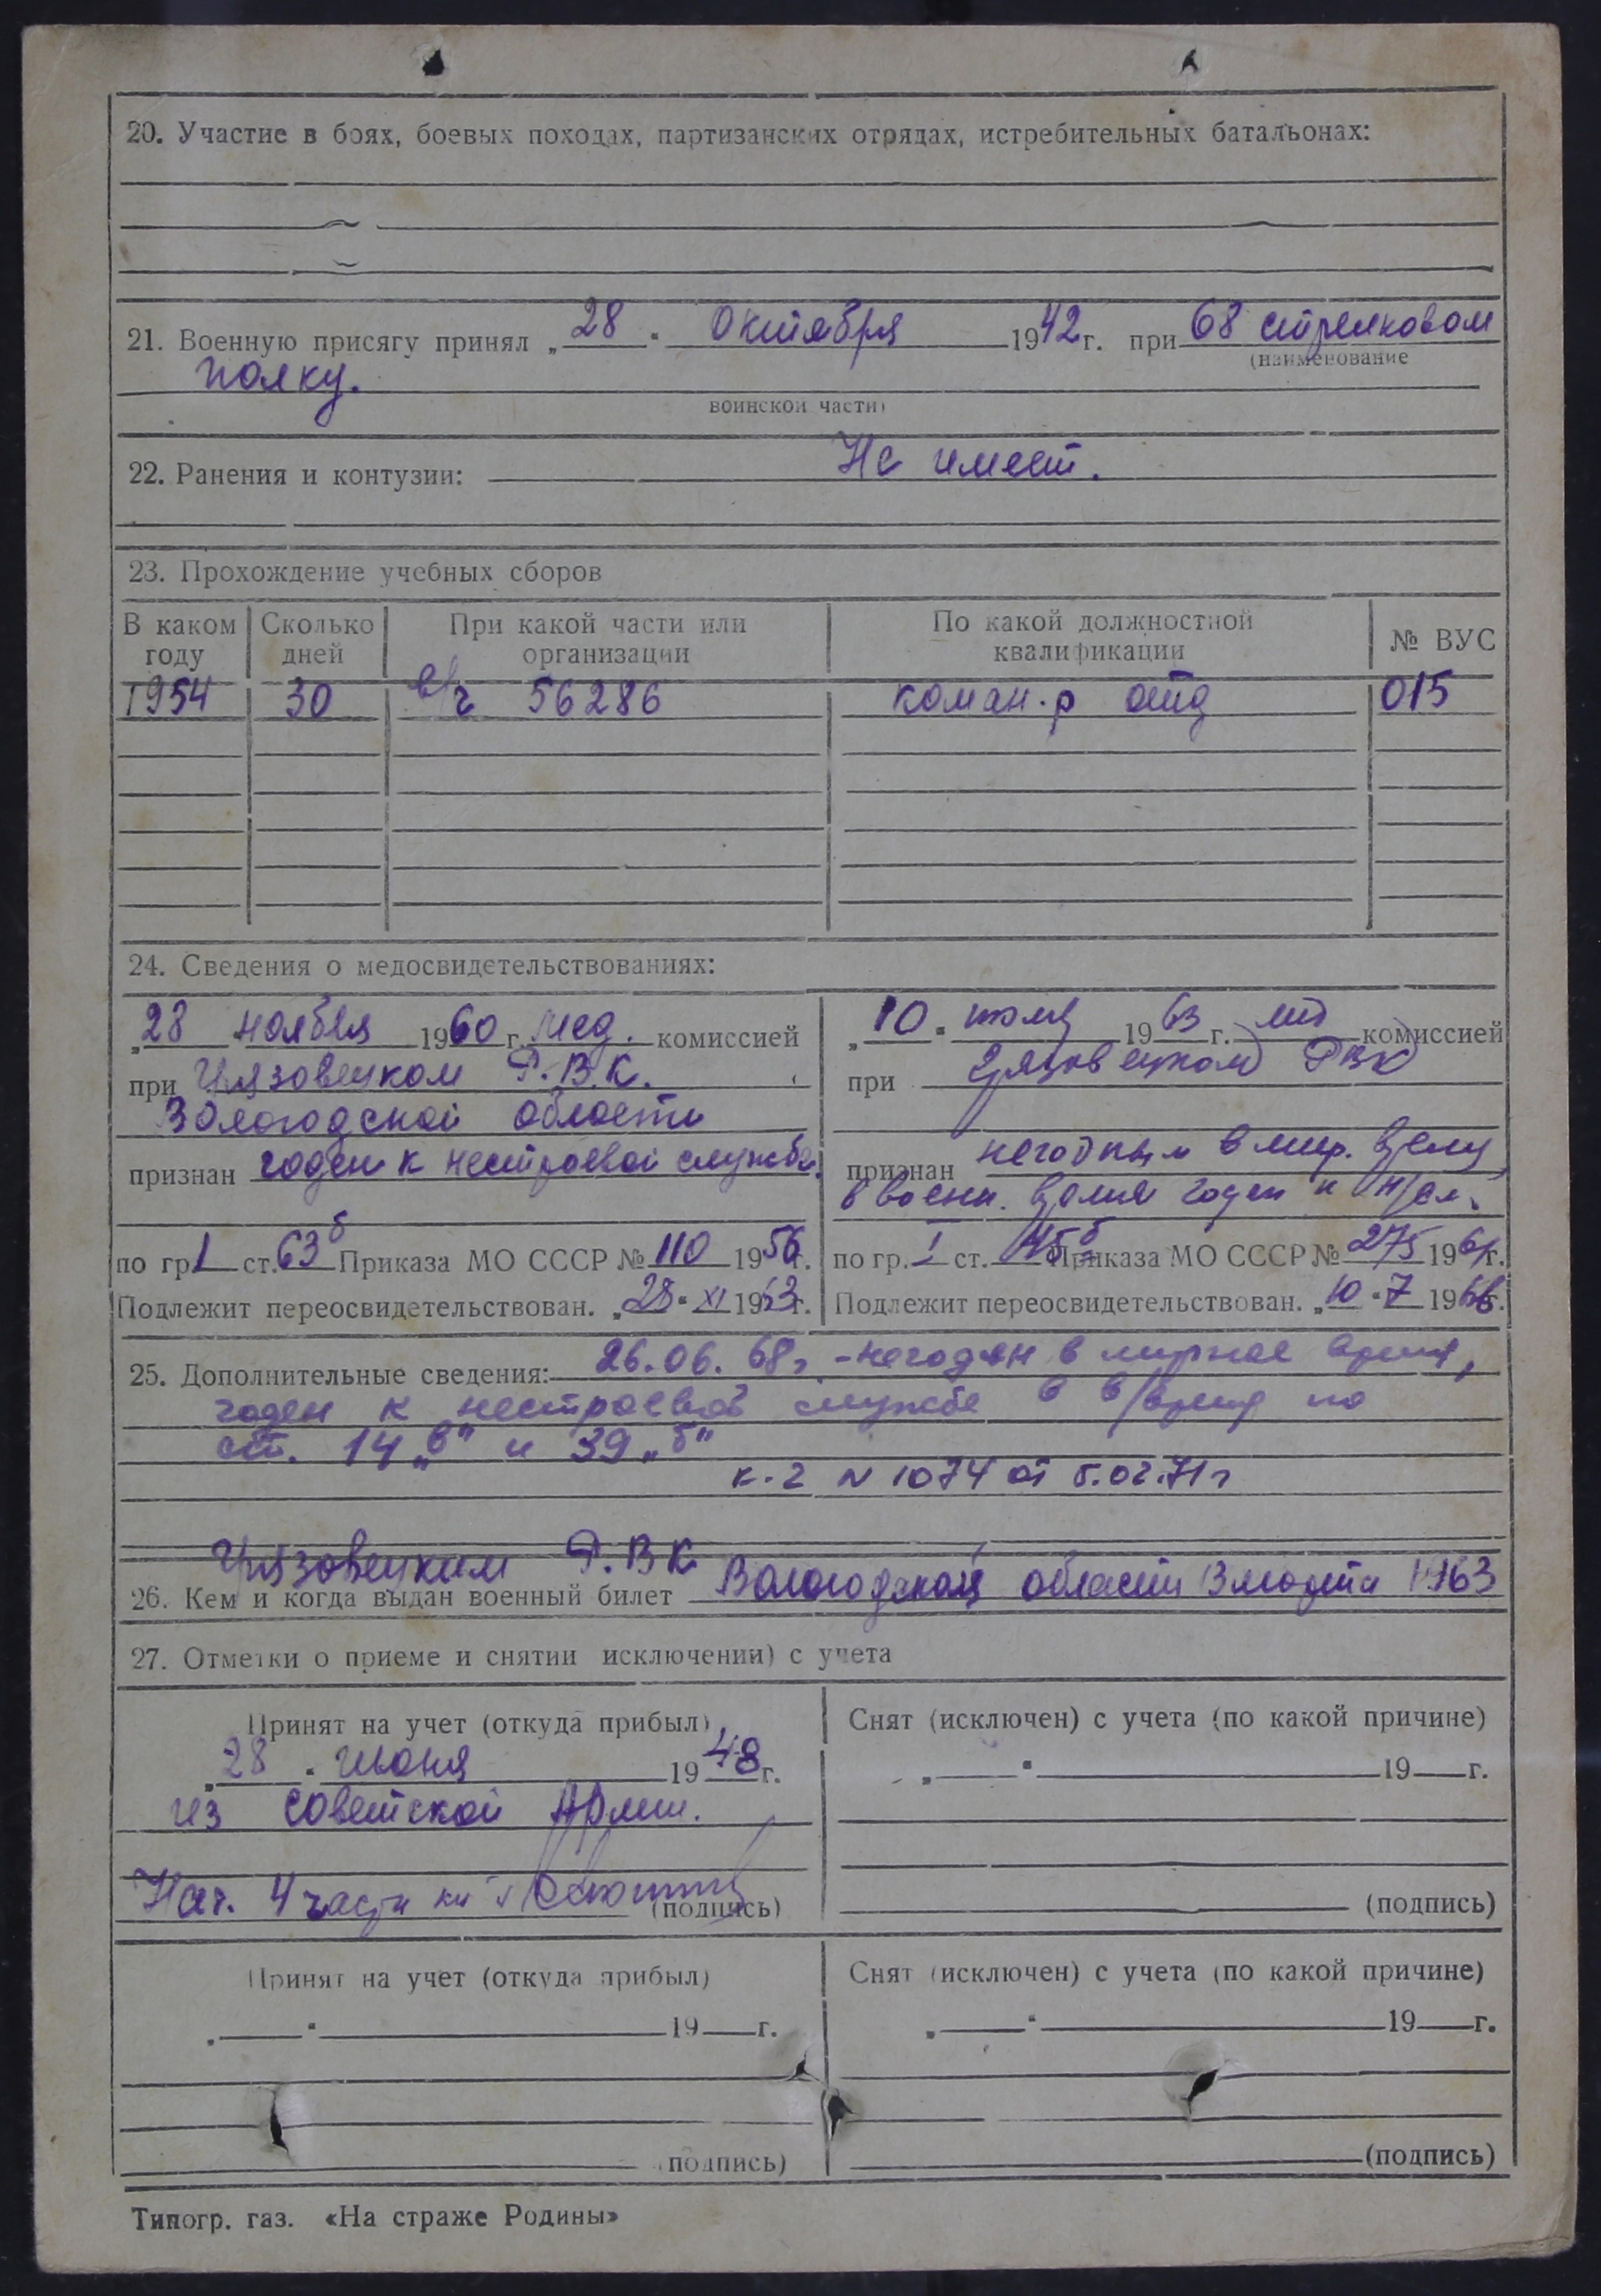 20. Участие в боях, боевых походах, партизанских отрядах, истребительных батальонах:
21. Военную присягу принял „28" Октября 1942 г. при 68 стрелковом
(наименование
полку.
воинской части)
22. Ранения и контузии: Не имеет.
23. Прохождение учебных сборов
В каком году Сколько дней При какой части или организации По какой должностной квалификации № ВУС
1954 30 в/ч 56286 коман.р отд 015
24. Сведения о медосвидетельствованиях:
„28 ноября 1960 г. мед. комиссией
при Грязовецком Р.В.К.
Вологодской области
признан годен к нестроевой службе.
по гр. 1 ст. 63б Приказа МО СССР № 110 1956 г.
Подлежит переосвидетельствован. „28" XI 1963 г.
„10" июля 1963 г. комиссией
при Грязовецком РВК
признан негодным в мир. время
в воен. время годен к н/сл.
по гр. I ст. Приказа МО СССР № 275 196 г.
Подлежит переосвидетельствован. „10" 7 1966 г.
25. Дополнительные сведения: 26.06.68г. - негоден в мирное время,
годен к нестроевой службе в в/время по
ст. 14 „в" и 39 „б"
к-2 N 1074 от 5.02.71г
Грязовецким Р.В.К.
26. Кем и когда выдан военный билет Вологодской области 13 марта 1963
27. Отметки о приеме и снятии исключении) с учета
Принят на учет (откуда прибыл)
„28" июня 1948 г.
из Советской Армии.
Нач. 4 части
(подпись)
Снят (исключен) с учета (по какой причине)
„ " 19 г.
(подпись)
Принят на учет (откуда прибыл)
„ " 19 г.
(подпись)
Снят (исключен) с учета (по какой причине)
„ " 19 г.
(подпись)
Типогр. газ. «На страже Родины»